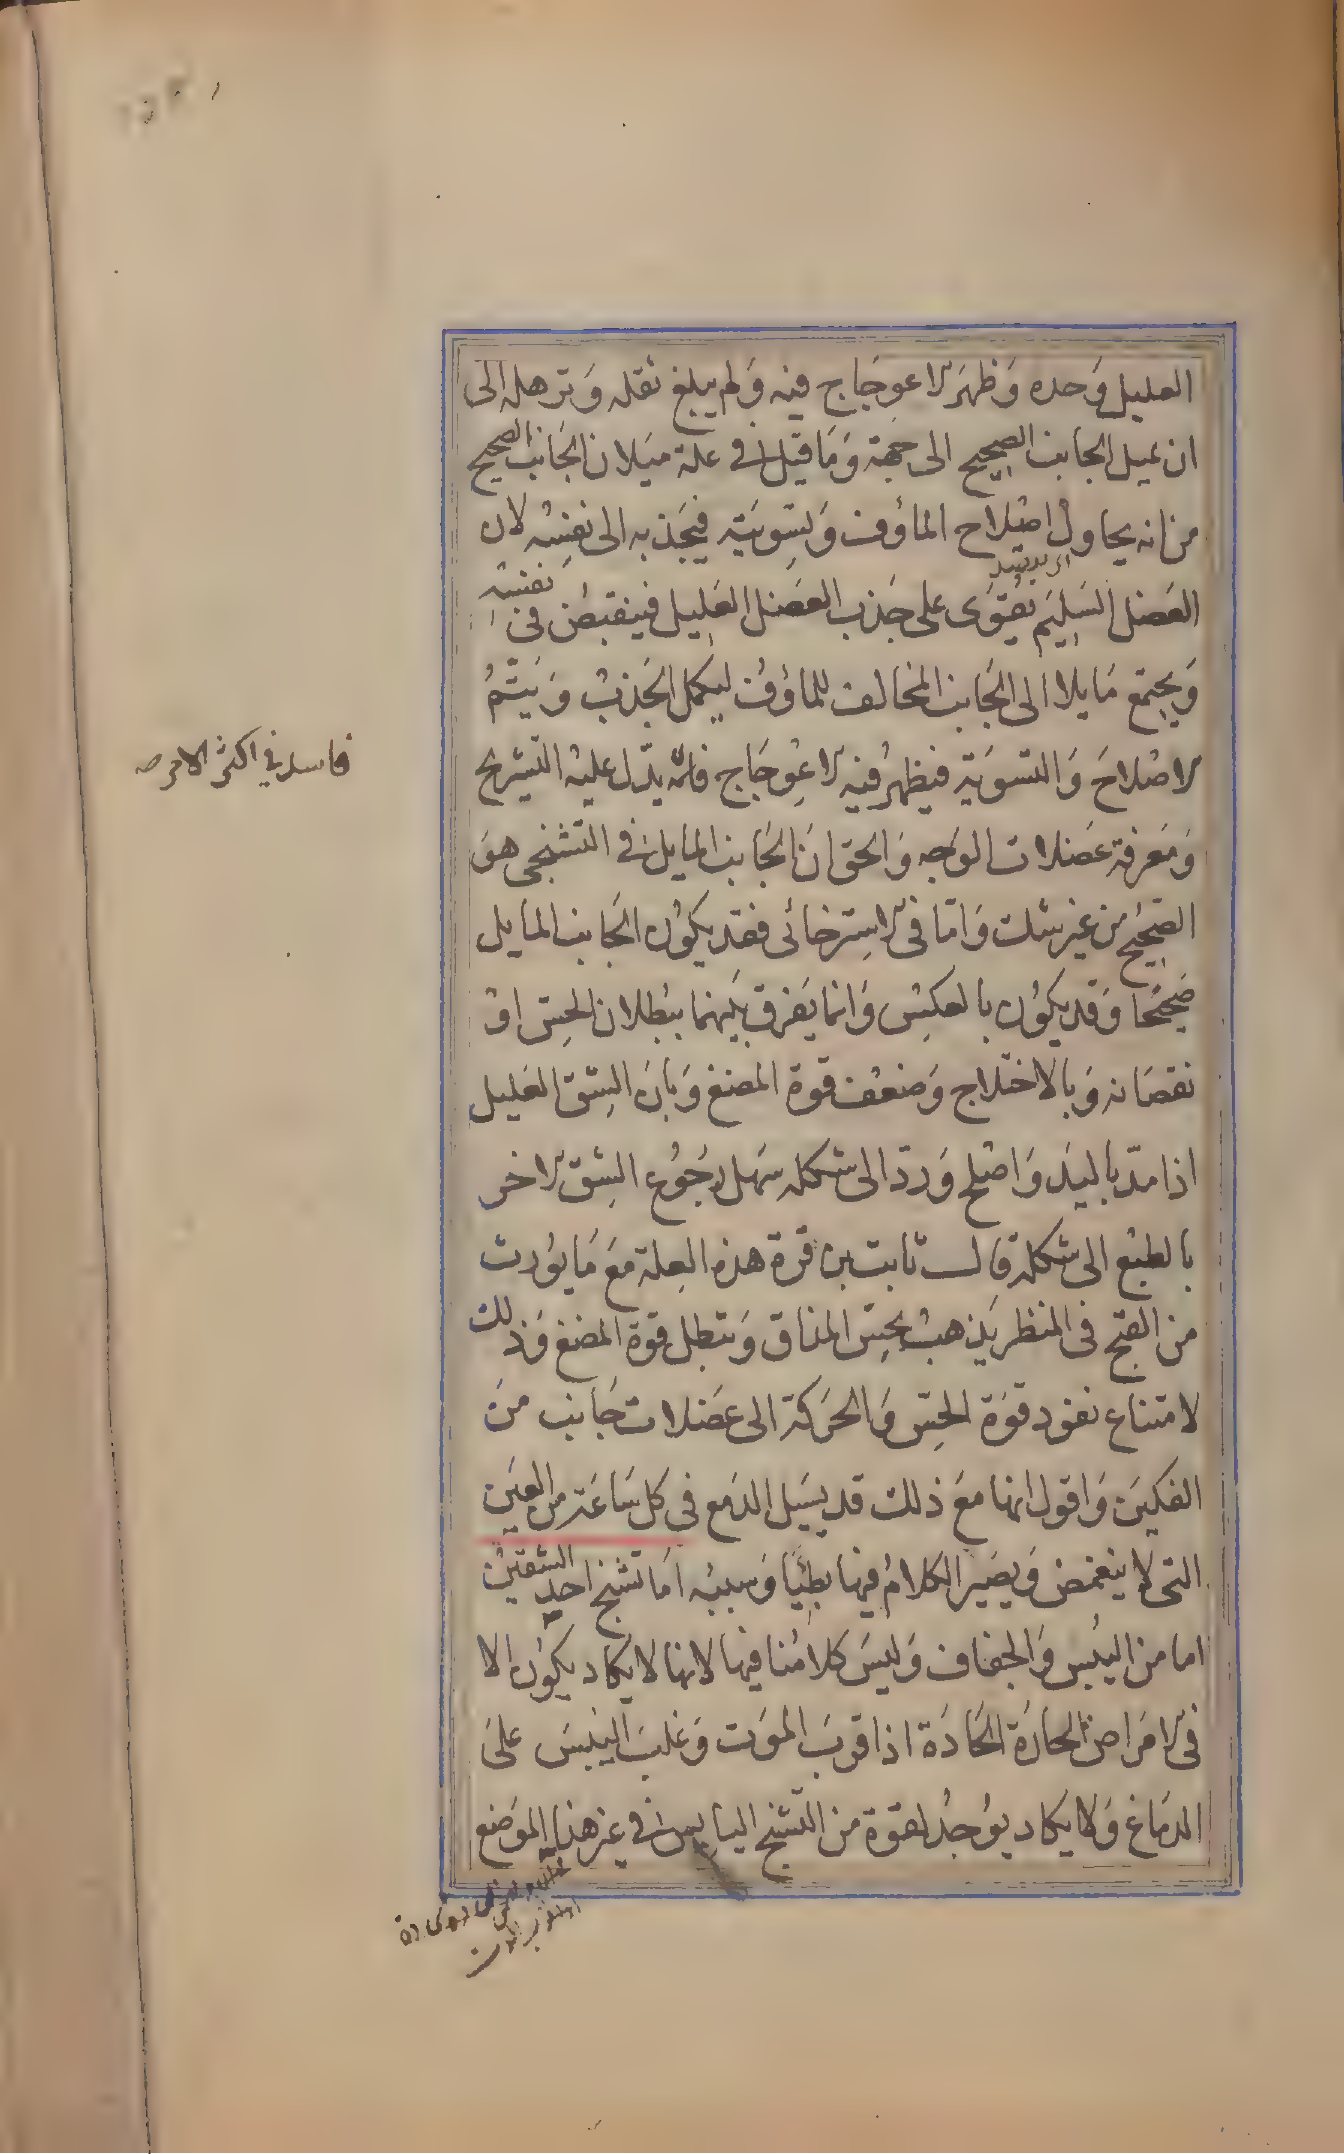 العليل وحده وظهر الاعوجاج فيه ولم يبلغ ثقله وترهله الى
ان يميل الجانب الصحيح الى جهة وما قيل في علة ميلان الجانب الصحيح
من انه يحاول اصلاح المأوف وتسويته فيجذبه الى نفسه لان
العضل السليم يقوى على جذب العضل العليل فينقبض في نفسه
ويجتمع مايلا الى الجانب المخالف للمأوف ليكمل الجذب ويتم
الاصلاح والتسوية فيظهر فيه الاعوجاج فانه يدل عليه التشريح
فاسد في اكثر الامر صه
ومعرفة عضلات الوجه والحق ان الجانب المايل في التشنجي هو
الصحيح من غير شك واما في الاسترخائى فقد يكون الجانب المايل
صحيحا وقد يكون بالعكس وانما يفرق بينهما ببطلان الحس او
نقصانه وبالاختلاج وضعف قوة المضغ وبان الشق العليل
اذا مد باليد واصلح ورد الى شكله سهل رجوع الشق الاخر
بالطبع الى شكله قال ثابت بن قرة هذه العلة مع ما يورث
من القبح في المنظر يذهب بحس المذاق وتبطل قوة المضغ وذلك
لامتناع نفود قوة الحس والحركة الى عضلات جانب من
الفكين واقول انها مع ذلك قد يسيل الدمع في كل ساعة من العين
التى لا ينغمض ويصير الكلام فيها بطيئا وسببه اما تشنج احد الشقين
اما من اليبس والجفاف وليس كلامنا فيها لانها لا يكاد يكون الا
في الامراض الحارة الحادة اذا قرب الموت وغلب اليبس على
الدماغ ولا يكاد يوجد لقوة من التشنج اليابس في غير هذا الموضع